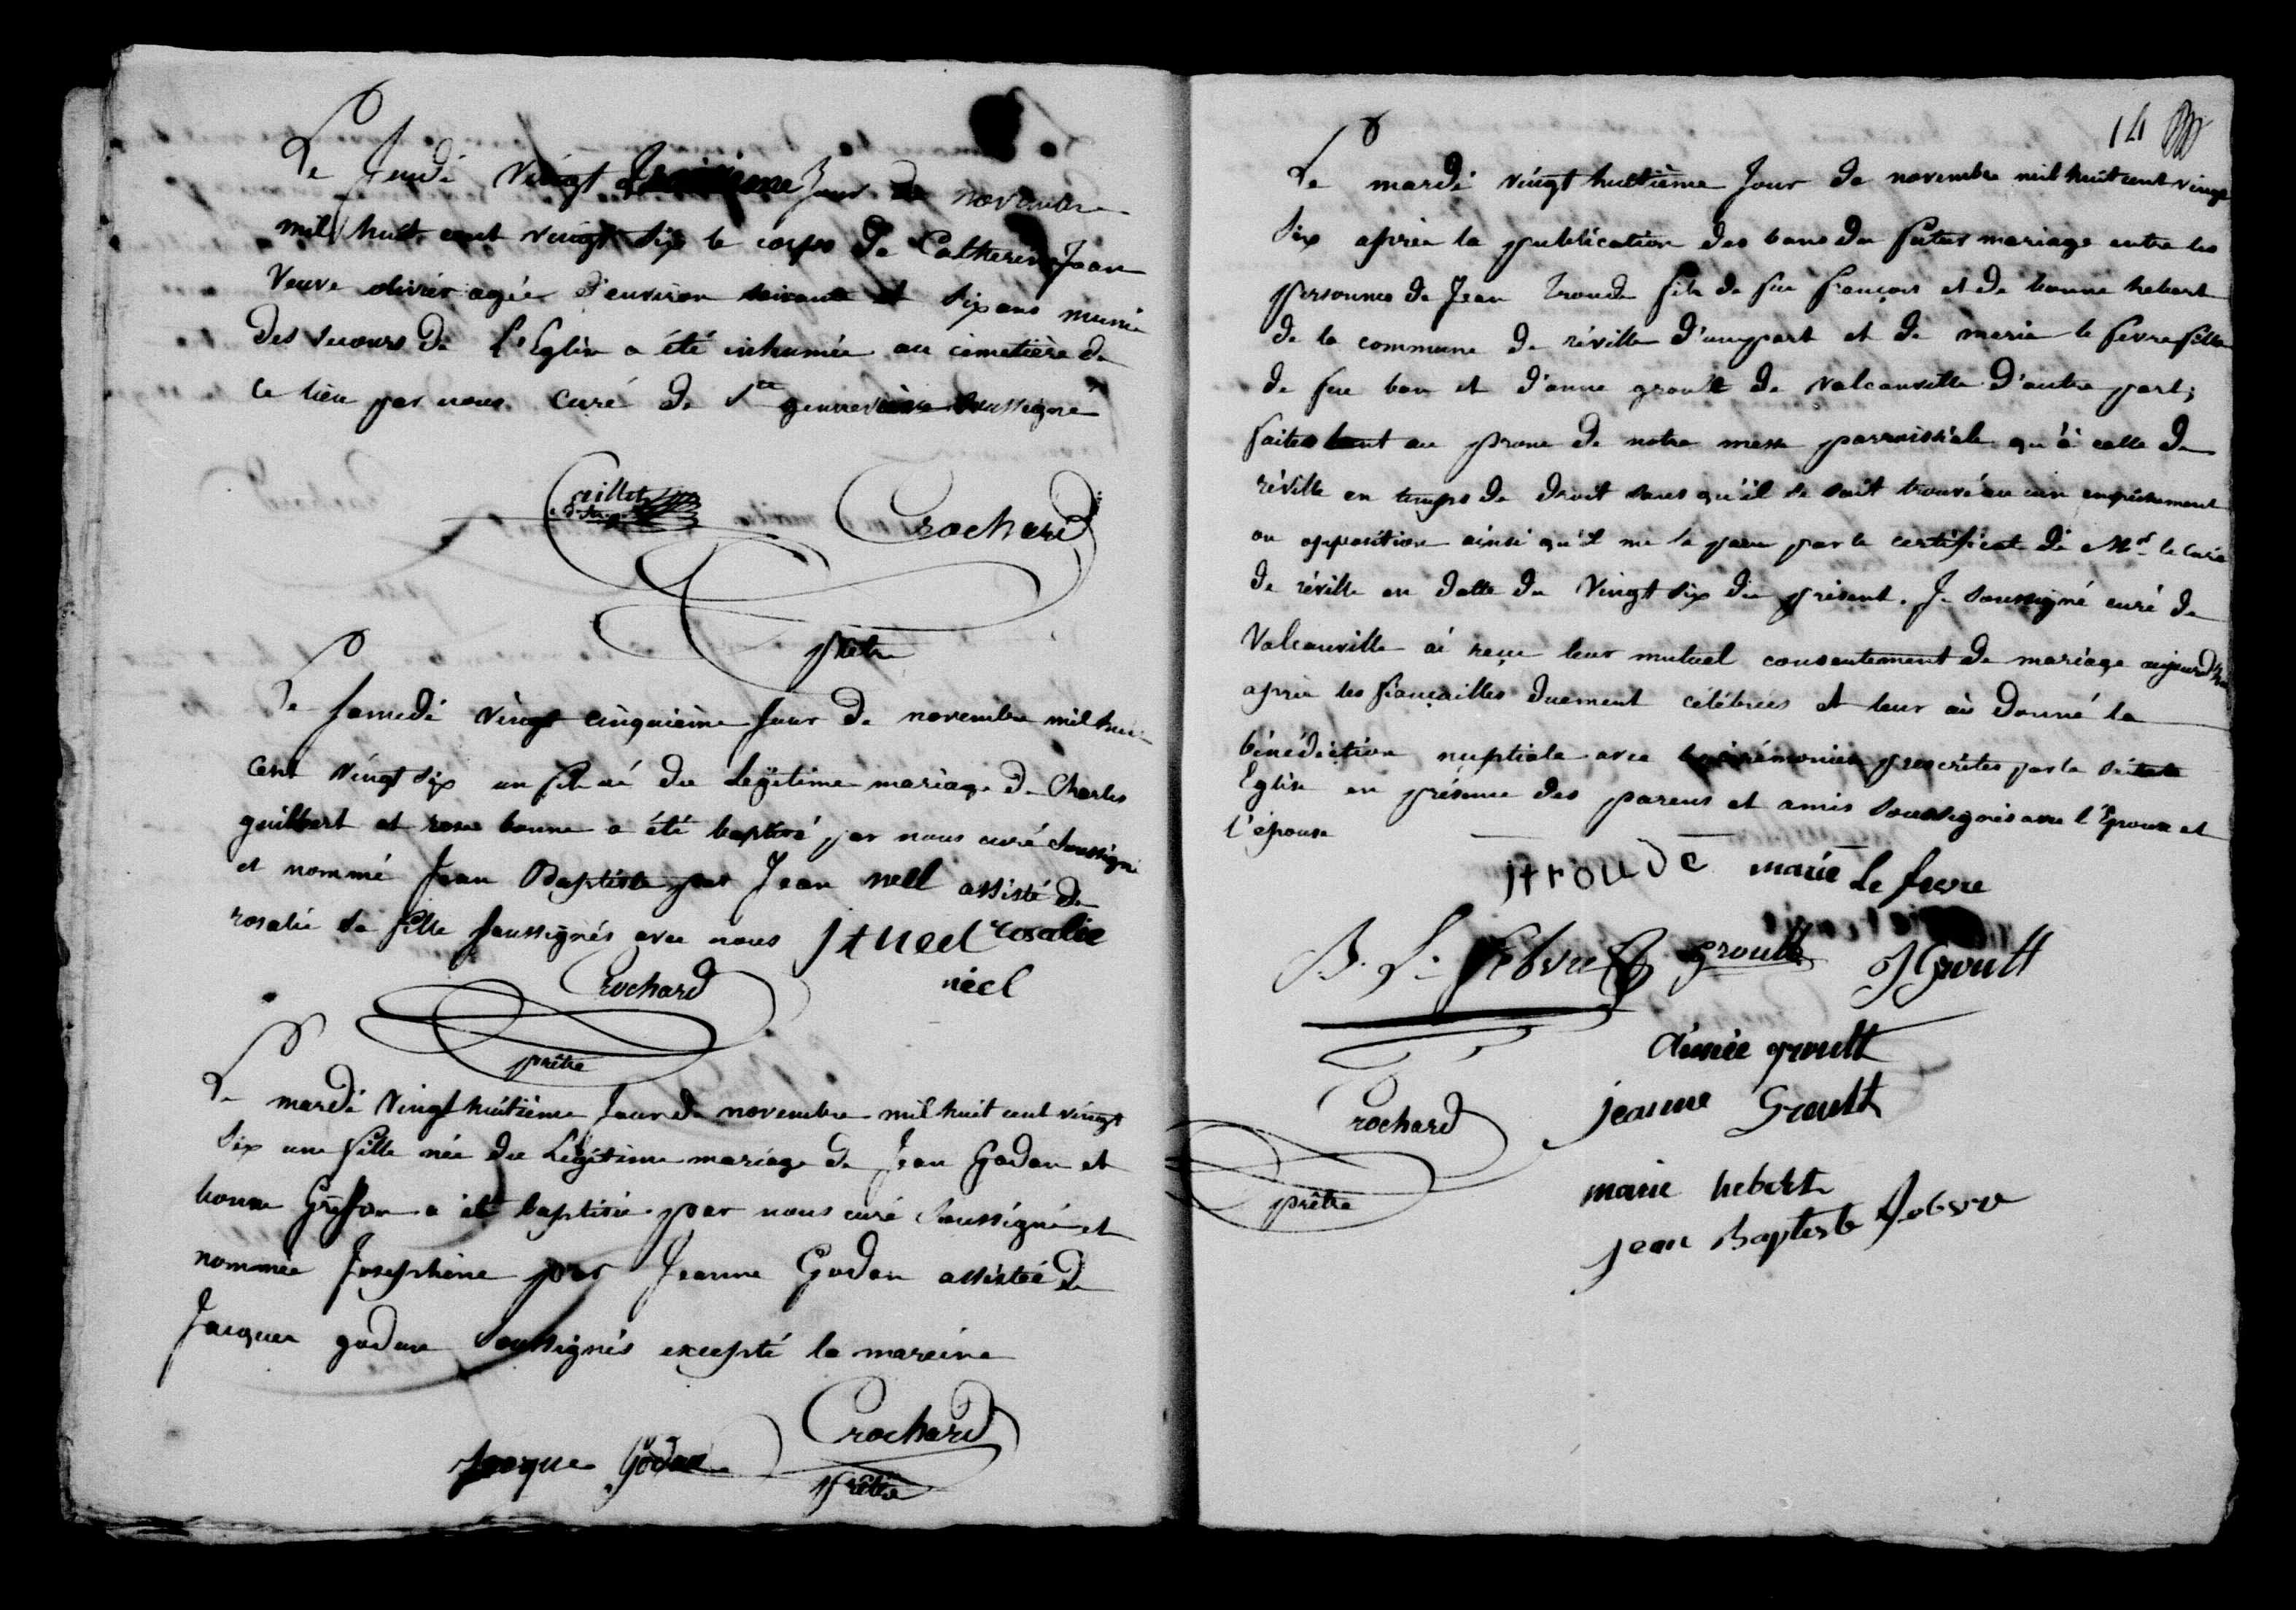 Le Jeudi vingt troisieme Jour de novembre
mil huit cent vingt six le corps de Catherine Jean
veuve olivier agée d'environ soixante et dix ans munie
des secours de l'Eglise a été inhumée au cimetière de
ce lieu par nous curé de Ste genneviève soussigné
Caillet
Crochard
prêtre
Le samedi vingt cinquième jour de novembre mil huit
cent vingt six un fils né du legitime mariage de Charles
guilbert et rose bonne a été baptisé par nous curé soussigné
et nommé Jean Baptiste par Jean néel assisté de
rosalie sa fille soussignés avec nous J néel rosalie
néel
Crochard
prêtre
Le mardi vingt huitième Jour de novembre mil huit cent vingt
six une fille née du Légitime mariage de Jean Godan et
bonne Greffon a été baptisée par nous curé soussigné et
nommée Josephine par Jeanne Godan assistée de
Jacques godan soussignés excepté la mareine
Jacque Godan
Crochard
prêtre
14
Le mardi vingt huitième Jour de novembre mil huit cent vingt
six après la publication des bans du futur mariage entre les
personnes de Jean Troude fils de feu françois et de bonne hebert
de la commune de réville d'une part et de marie le fevre fille
de feu bon et d'anne groult de valcanville d'autre part;
faites tant au prone de notre messe parroissiale qu'à celle de
réville en temps de droit sans qu'il se soit trouvé aucun empêchement
ou opposition ainsi qu'il me la paru par le certificat de Mr le Curé
de réville en datte du vingt six du présent. Je soussigné curé de
Valcanville ai reçu leur mutuel consentement de mariage aujourd'hui
après les fiançailles duement célébrées et leur ai donné la
bénédiction nuptiale avec les cérémonies prescrites par la sainte
Eglise en présence des parens et amis soussignés avec l'Epoux et
l'épouse
J troude marie Le fevre
B. Le Febvre groult J Groult
aimée groult
Crochard
jeanne Groult
prêtre
marie hebert
jean Baptiste febvre